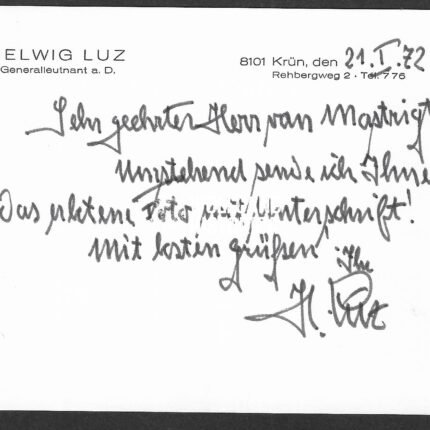 ELWIG LUZ
Generalleutnant a. D.
8101 Krün, den 21.I.72
Rehbergweg 2 · Tel. 776
Sehr geehrter Herr van Mastrigt
Umstehend sende ich Ihne
Das erbetene Foto mit Unterschrift!
Mit besten Grüßen
Ihr
H. Luz